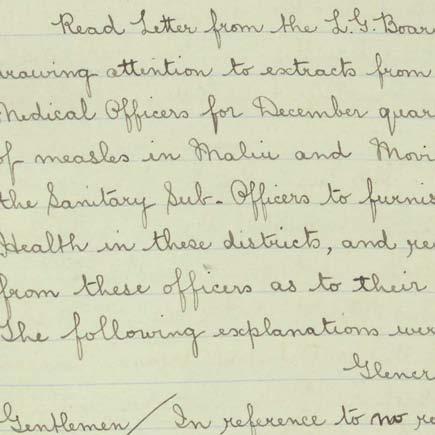 Read Letter from the L.G. Boar
rawing attention to extracts from
Medical Officers for December quar
of measles in Malin and Movi
the Sanitary Sub-Officers to furnis
Health in these districts, and re
from these officers as to their
The following explanations wer
Glencr
Gentlemen/ In reference to no re